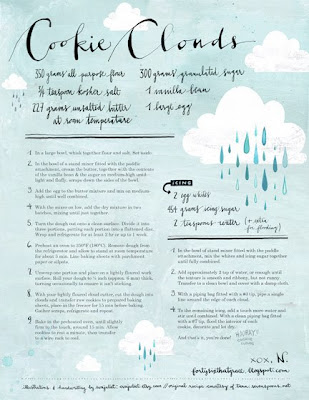 Cookie Clouds
350 grams all-purpose flour
3/4 teaspoon kosher salt
227 grams unsalted butter
at room temperature
300 grams granulated sugar
1 vanilla bean
1 large egg
1. In a large bowl, whisk together flour and salt. Set aside.
2. In the bowl of a stand mixer fitted with the paddle
attachment, cream the butter, sugar, together with the contents
of the vanilla bean & the sugar on medium-high until
light and fluffy, scrape down the sides of the bowl.
3. Add the egg to the butter mixture and mix on medium-
high, until well combined.
4. With the mixer on low, add the dry mixture in two
batches, mixing until just together.
5. Turn the dough out onto a clean surface. Divide it into
three portions, patting each portion into a flattened disc.
Wrap and refrigerate for at least 2 hr or up to 1 week.
6. Preheat an oven to 350°F (180°C). Remove dough from
the refrigerator and allow to stand at room temperature
for about 5 min. Line baking sheets with parchment
paper or silpats.
7. Unwrap one portion and place on a lightly floured work
surface. Roll your dough to
turning occasionally to ensure it isn't sticking.
8. With your lightly floured cloud cutter, cut the dough into
clouds and transfer raw cookies to prepared baking
sheets, place in the freezer for 15 min before baking.
Gather scraps, refrigerate and repeat.
9. Bake in the preheated oven, until slightly
firm to the touch, around 15 min. Allow
cookies to rest a minute, then transfer
to a wire rack to cool.
ICING
2 egg whites
454 grams icing sugar
2 teaspoons water (+ extra
for flooding)
1. In the bowl of a stand mixer fitted with the paddle
attachment, mix the whites and icing sugar together
until fully combined.
2. Add approximately 2 tsp of water, or enough until
the texture is smooth and ribbony, but not runny.
Transfer to a clean bowl and cover with a damp cloth.
3. With a piping bag fitted with a #2 tip, pipe a single
line around the edge of each cloud.
4. To the remaining icing, add a touch more water and
stir until smooth. With a clean piping bag fitted
with a #2 tip, flood the interior of each
cookie, decorate and let dry.
And that's it, you're done!
xox, N.
fortysixthatgrace.blogspot.com
illustrations & handwriting by